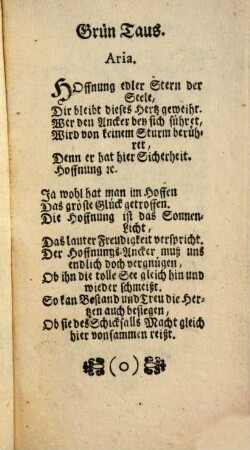 Grün Taus.
Aria.
HOffnung edler Stern der
Seele,
Dir bleibt dieses Hertz geweiht.
Wer den Ancker bey sich führet,
Wird von keinem Sturm berüh-
ret,
Denn er hat hier Sicherheit.
Hoffnung ꝛc.
Ja wohl hat man im Hoffen
Das gröste Glück getroffen.
Die Hoffnung ist das Sonnen-
Licht,
Das lauter Freudigkeit verspricht.
Der Hoffnungs-Ancker muß uns
endlich doch vergnügen,
Ob ihn die tolle See gleich hin und
wieder schmeißt.
So kan Bestand und Treu die Her-
tzen auch besiegen,
Ob sie des Schicksalls Macht gleich
hier vonsammen reißt.
(o)